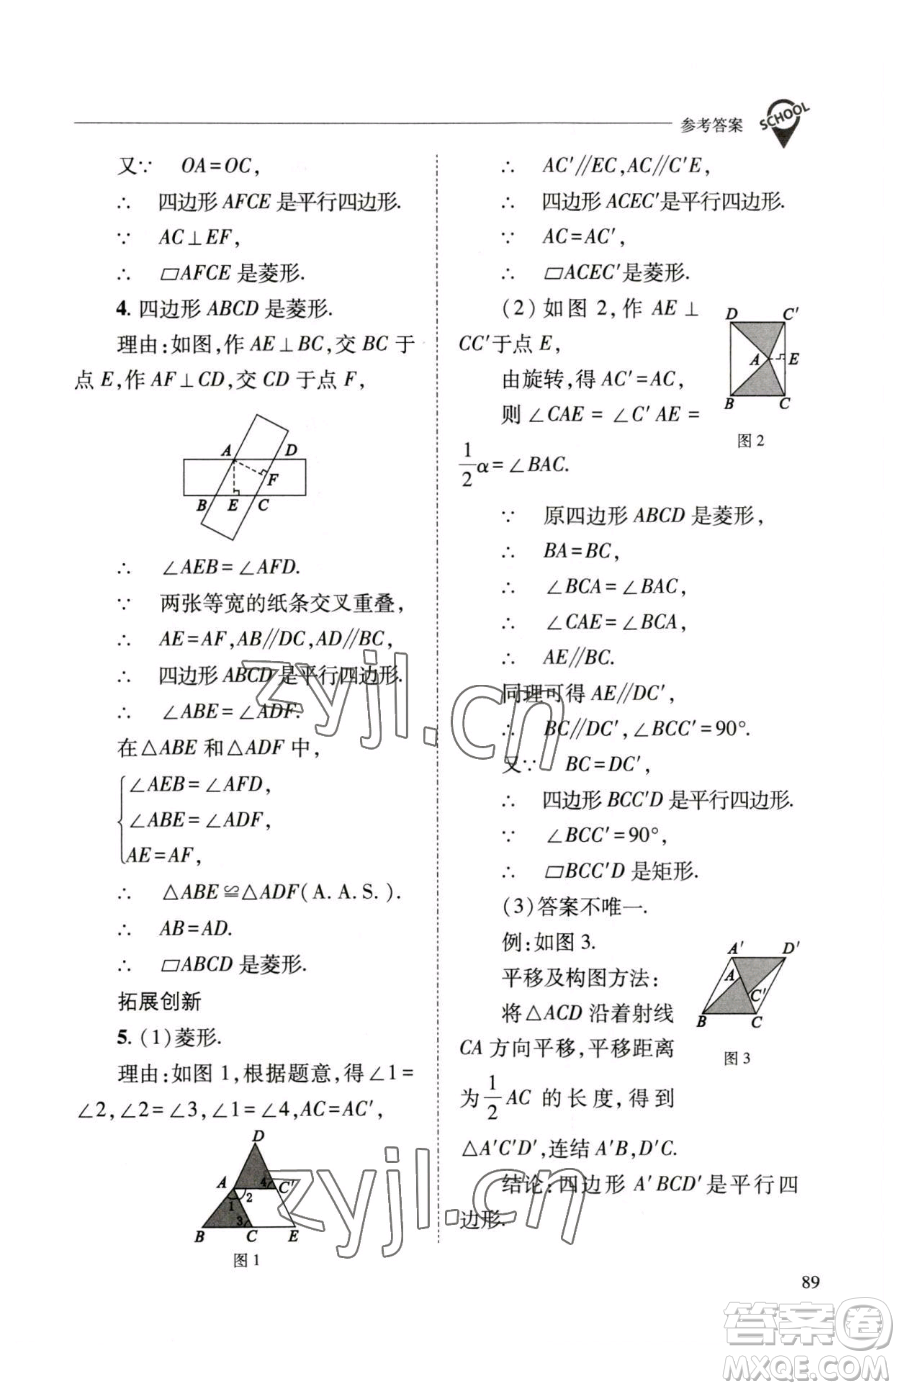 参考答案
SCHOOL
又∵ OA=OC,
∴ 四边形 AFCE 是平行四边形.
∵ AC⊥EF,
∴ ▱AFCE 是菱形.
4. 四边形 ABCD 是菱形.
理由:如图,作 AE⊥BC,交 BC 于
点 E,作 AF⊥CD,交 CD 于点 F,
A D
F
B E C
∴ ∠AEB=∠AFD.
∵ 两张等宽的纸条交叉重叠,
∴ AE=AF,AB∥DC,AD∥BC,
∴ 四边形 ABCD 是平行四边形.
∴ ∠ABE=∠ADF.
在△ABE 和△ADF 中,
∠AEB=∠AFD,
∠ABE=∠ADF,
AE=AF,
∴ △ABE≌△ADF(A.A.S.).
∴ AB=AD.
∴ ▱ABCD 是菱形.
拓展创新
5. (1)菱形.
理由:如图 1,根据题意,得∠1=
∠2,∠2=∠3,∠1=∠4,AC=AC′,
D
A 4 C′
1 2
3
B C E
图 1
∴ AC′∥EC,AC∥C′E,
∴ 四边形 ACEC′是平行四边形.
∵ AC=AC′,
∴ ▱ACEC′是菱形.
(2)如图 2,作 AE⊥
CC′于点 E,
由旋转,得 AC′=AC,
则∠CAE=∠C′AE=
1/2 α=∠BAC.
D C′
A E
B C
图 2
∵ 原四边形 ABCD 是菱形,
∴ BA=BC,
∴ ∠BCA=∠BAC,
∴ ∠CAE=∠BCA,
∴ AE∥BC.
同理可得 AE∥DC′,
∴ BC∥DC′,∠BCC′=90°.
又∵ BC=DC′,
∴ 四边形 BCC′D 是平行四边形.
∵ ∠BCC′=90°,
∴ ▱BCC′D 是矩形.
(3)答案不唯一.
例:如图 3.
平移及构图方法:
将△ACD 沿着射线
CA 方向平移,平移距离
为 1/2 AC 的长度,得到
△A′C′D′,连结 A′B,D′C.
A′ D′
A
C′
B C
图 3
结论:四边形 A′BCD′是平行四
边形.
89
zyjl.cn
zyjl.cn
答案圈
MXQE.COM